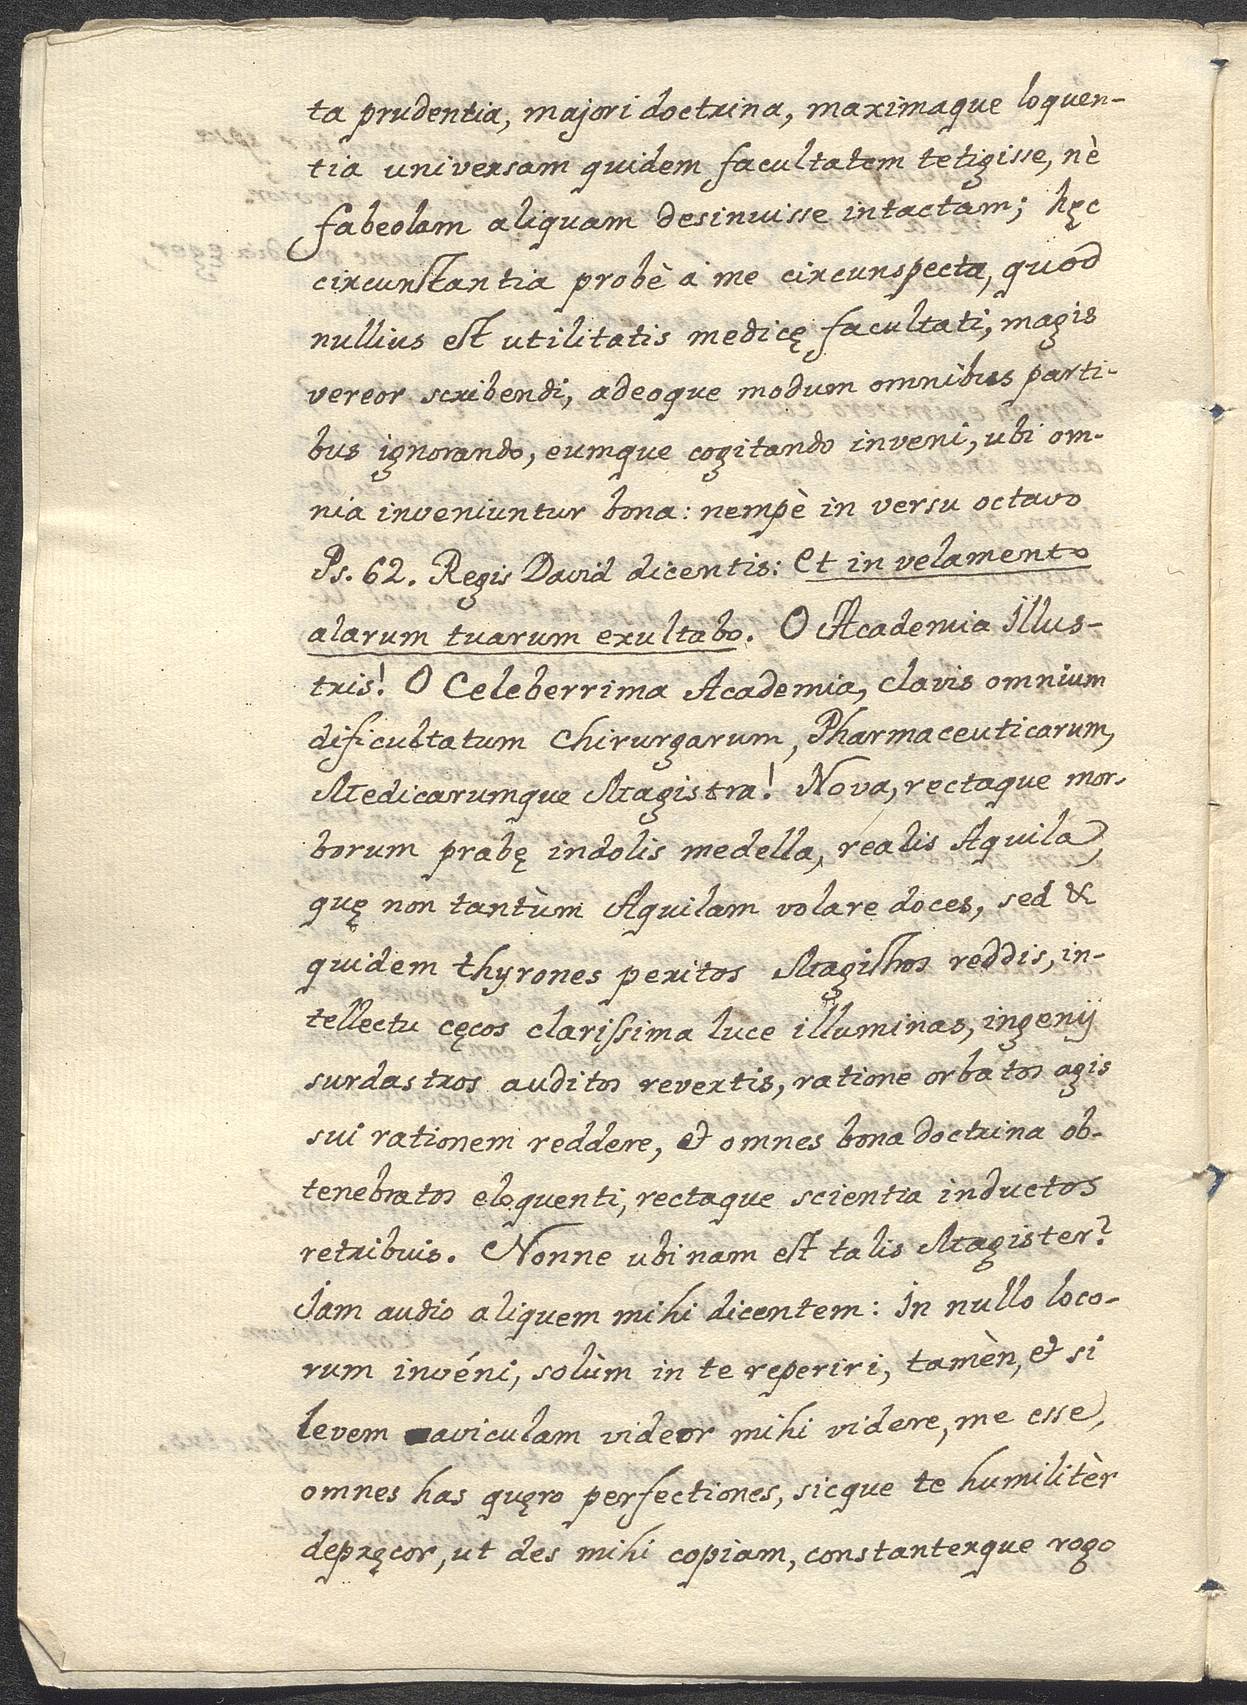 ta prudentia, majori doctrina, maximaque loquen-
tia universam quidem facultatem tetigisse, nè
fabeolam aliquam desinuisse intactam; hęc
circunstantia probè à me circunspecta, quod
nullius est utilitatis medicę facultati, magis
vereor scribendi, adeoque modum omnibus parti-
bus ignorando, eumque cogitando inveni, ubi om-
nia inveniuntur bona: nempè in versu octavo
Ps. 62. Regis David dicentis: Et in velamento
alarum tuarum exultabo. O Academia Illus-
tris! O Celeberrima Academia, clavis omnium
dificultatum Chirurgarum, Pharmaceuticarum,
Medicarumque Magistra! Nova, rectaque mor-
borum prabę indolis medella, realis Aquila,
quę non tantùm Aquilam volare doces, sed &
quidem thyrones peritos Magistros reddis, in-
tellectu cęcos clarissima luce illuminas, ingenij
surdastros auditos revertis, ratione orbatos agis
sui rationem reddere, et omnes bona doctrina ob-
tenebratos eloquenti, rectaque scientia inductos
retribuis. Nonne ubinam est talis Magister?
Jam audio aliquem mihi dicentem: In nullo loco-
rum invéni, solùm in te reperiri, tamèn, et si
levem aviculam videor mihi videre, me esse,
omnes has quęro perfectiones, sicque te humilitèr
depręcor, ut des mihi copiam, constanterque rogo